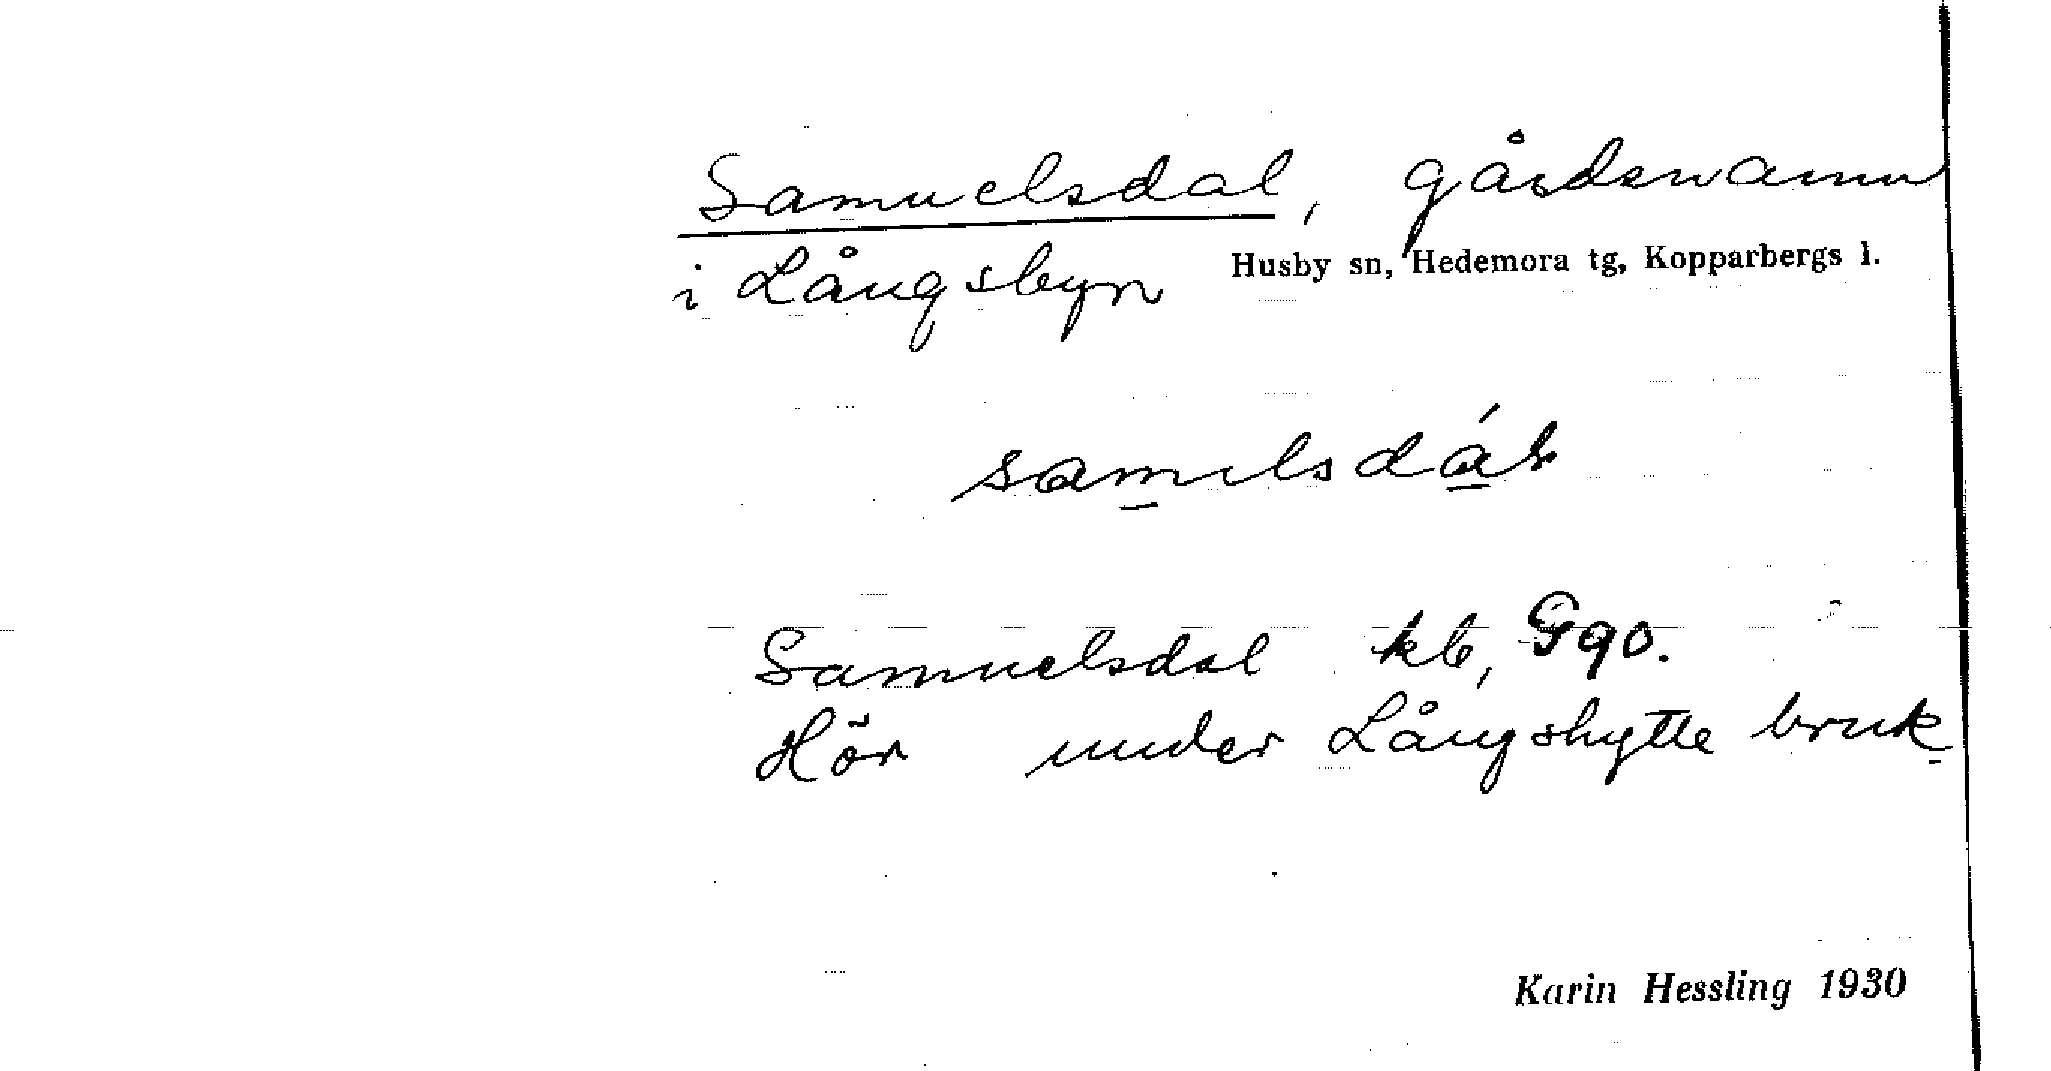 Samuelsdal, gårdsnamn
i Långsbyn Husby sn, Hedemora tg, Kopparbergs l.
Samuelsdal kb, G90.
Hör under Långshytte bruk
Karin Hessling 1930